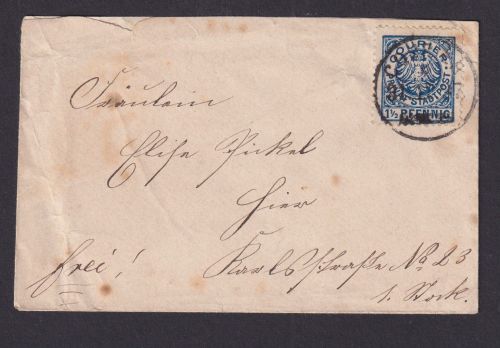 COURIER
STADTPOST
1½ PFENNIG
Fräulein
Elise Pickel
Hier
frei! Karlsstraße No 23
1. Stock.